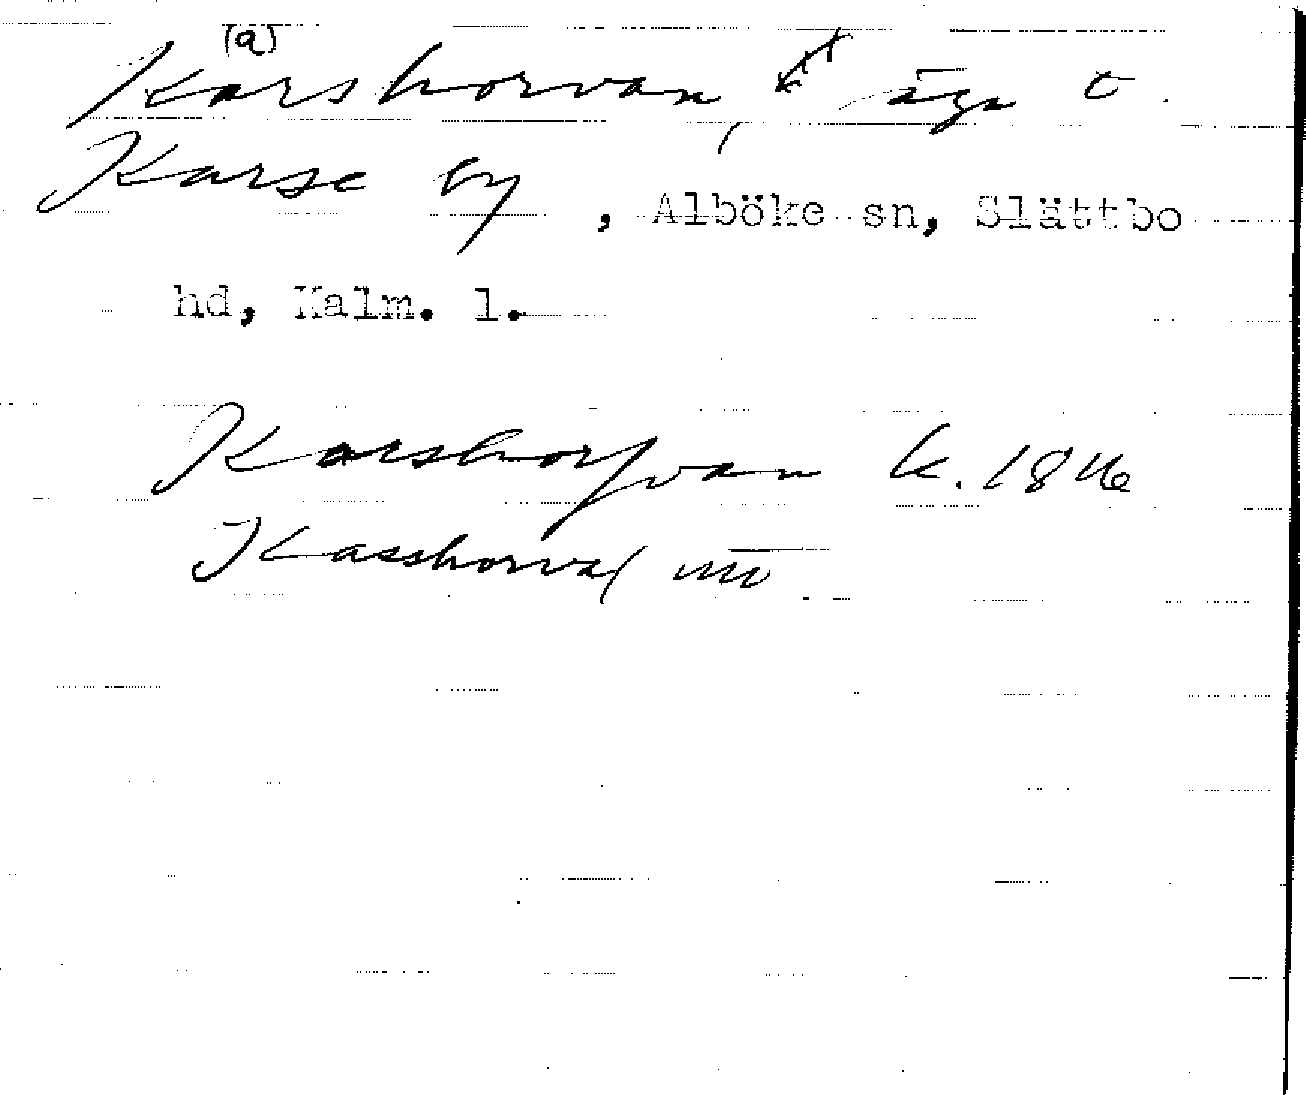 (a)
Karshorvan, äga t.
Karse by, Alböke sn, Slättbo
hd, Kalm. l.
Karshorfvan k. 1846
Kasshorva